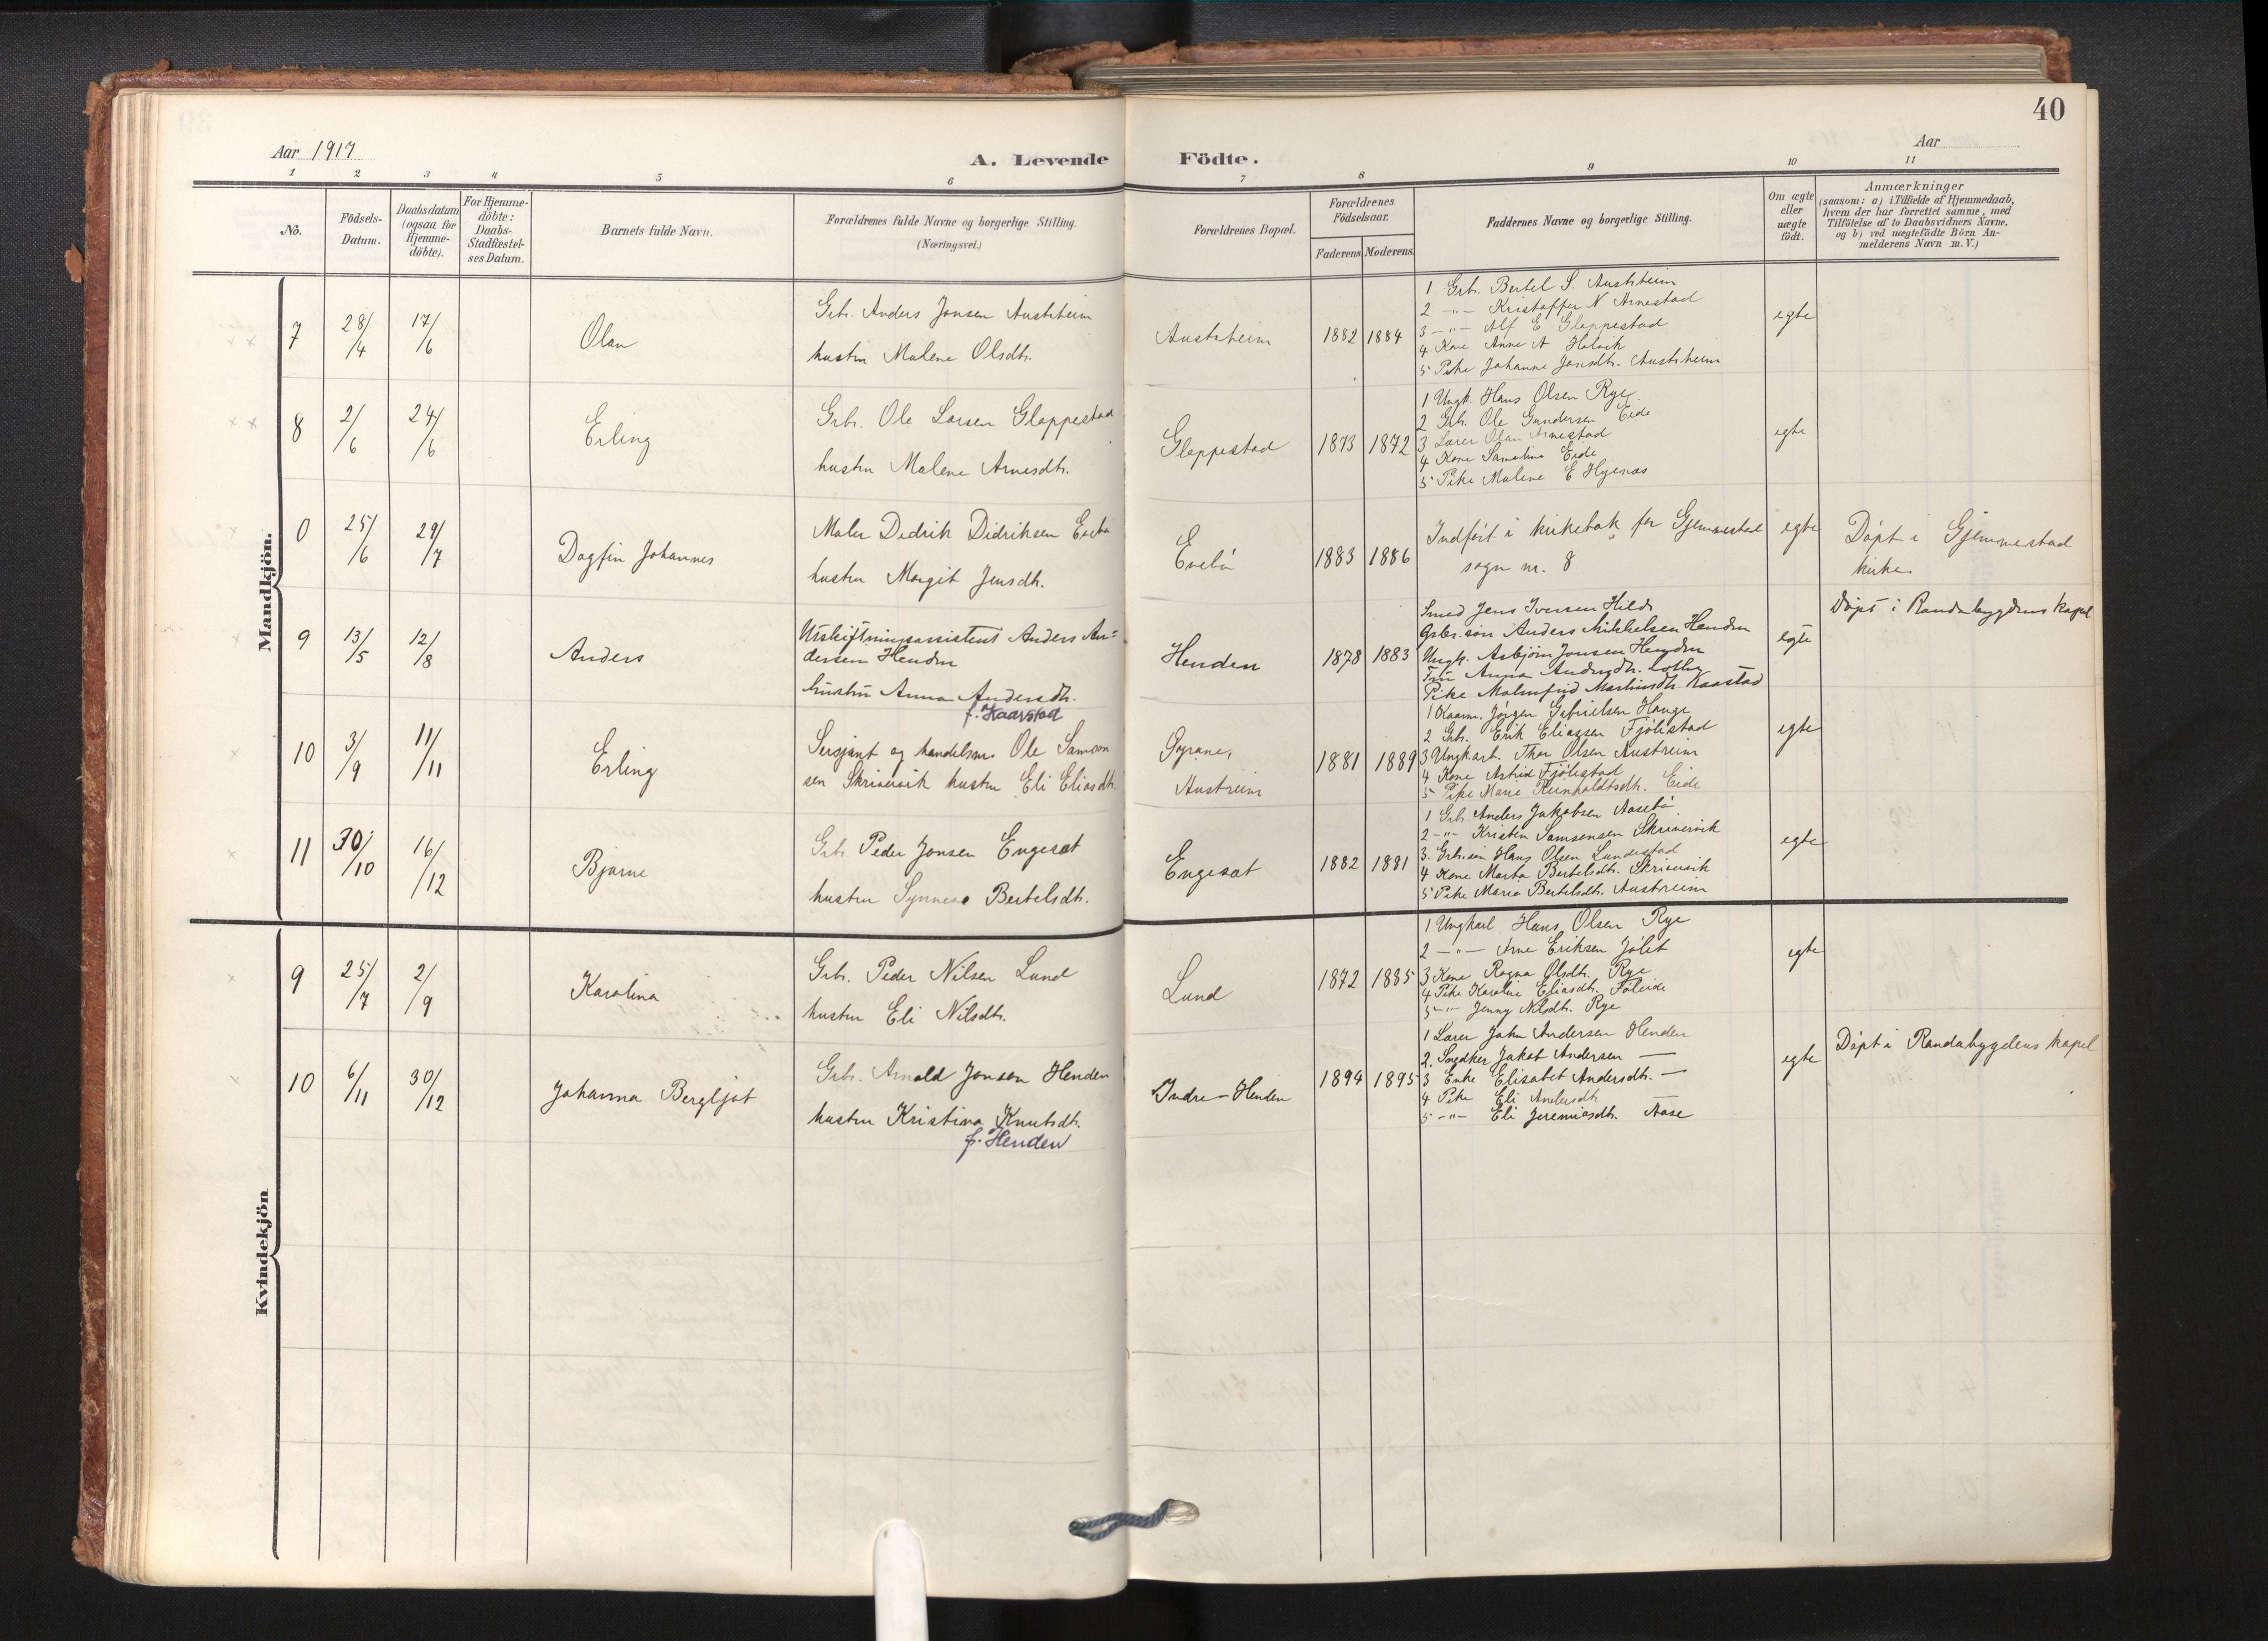 40
Aar 1917
Aar
A. Levende Födte.
1 2 3 4 5 6 7 8 9 10 11
No.
Födsels-Datum.
Daabsdatum (ogsaa for Hjemme-döbte).
For Hjemme-döbte: Daabs-Stadfæstel-ses Datum.
Barnets fulde Navn.
Forældrenes fulde Navne og borgerlige Stilling.
(Næringsvei.)
Forældrenes Bopæl.
Forældrenes Födselsaar.
Faderens Moderens
Faddernes Navne og borgerlige Stilling.
Om ægte eller uægte födt.
Anmærkninger
(saasom: a) i Tilfælde af Hjemmedaab,
hvem der har forrettet samme, med
Tilföielse af to Daabsvidners Navne,
og b) ved uægtefödte Börn An-
melderens Navn m. V.)
Mandkjön.
7 28/4 17/6 Olav
Grb. Anders Jonsen Austrheim
hustru Malene Olsdtr.
Austrheim 1882 1884
1 Grb. Bertel S. Austrheim
2 -"- Kristoffer N Arnestad
3 -"- Alf E Gloppestad
4 Kone Anne A Holvik
5 Pike Johanne Jonsdtr. Austrheim
egte
8 2/6 24/6 Erling
Grb. Ole Larsen Gloppestad
hustru Malene Arnesdtr.
Gloppestad 1873 1872
1 Ungk. Hans Olsen Rye
2 Grb. Ole Gundersen Eide
3 Lærer Olav Arnestad
4 Kone Samuline Eide
5 Pike Malene E Hjenæs
egte
0 25/6 29/7 Dagfin Johannes
Maler Didrik Didriksen Evebø
hustru Margit Jensdtr.
Evebø 1883 1886
Indført i kirkebok for Gjemmestad
sogn nr. 8
egte
Døpt i Gjemmestad
kirke.
9 13/5 12/8 Anders
Utskiftningsassistent Anders An=
dersen Henden
hustru Anna Andersdtr.
f. Kaarstad
Henden 1878 1883
Smed Jens Iversen Hilde
Gbr.søn Anders Mikkelsen Henden
Ungk. Asbjørn Jonsen Henden
Fru Anna Andrsdtr. Lothe
Pike Malmfrid Martinsdtr. Kaastad
egte
Døpt i Randabygdens kapel
10 3/9 11/11 Erling
Sersjant og handelsm. Ole Samson
sen Skrivervik hustru Eli Eliasdtr.
Øyrane,
Austreim
1881 1889
1 Kaarm. Jörgen Gabrielsen Hauge
2 Grb. Erik Eliassen Fjölestad
3 Ungk.arb. Thor Olsen Austreim
4 Kone Astrid Fjölestad
5 Pike Marie Reinholdtsdtr. Eide
egte
11 30/10 16/12 Bjarne
Grb. Peder Jonsen Engeset
hustru Synneve Bertelsdtr.
Engeset 1882 1881
1 Grb. Anders Jakobsen Aasebø
2 -"- Kristen Samsonsen Skrivervik
3. Grb.søn Hans Olsen Lundestad
4 Kone Marta Bertelsdtr. Skrivervik
5 Pike Maria Bertelsdtr. Austreim
egte
Kvindekjön
9 25/7 2/9 Karolina
Grb. Peder Nilsen Lund
hustru Eli Nilsdtr.
Lund 1872 1885
1 Ungkarl Hans Olsen Rye
2 -"- Arne Eriksen Jölet
3 Kone Ragna Olsdtr. Rye
4 Pike Karoline Eliasdtr. Föleide
5 -"- Jenny Nilsdtr. Rye
egte
10 6/11 30/12 Johanna Bergljot
Grb. Arnold Jonsen Henden
hustru Kristina Knutsdtr.
f. Henden
Indre-Henden 1894 1895
1 Lærer John Andersen Henden
2. Snedker Jakob Andersen —
3 Enke Elisabet Andersdtr. —
4 Pike Eli Andersdtr
5 -"- Eli Jeremiasdtr. Aase
egte
Døpt i Randabygdens kapel